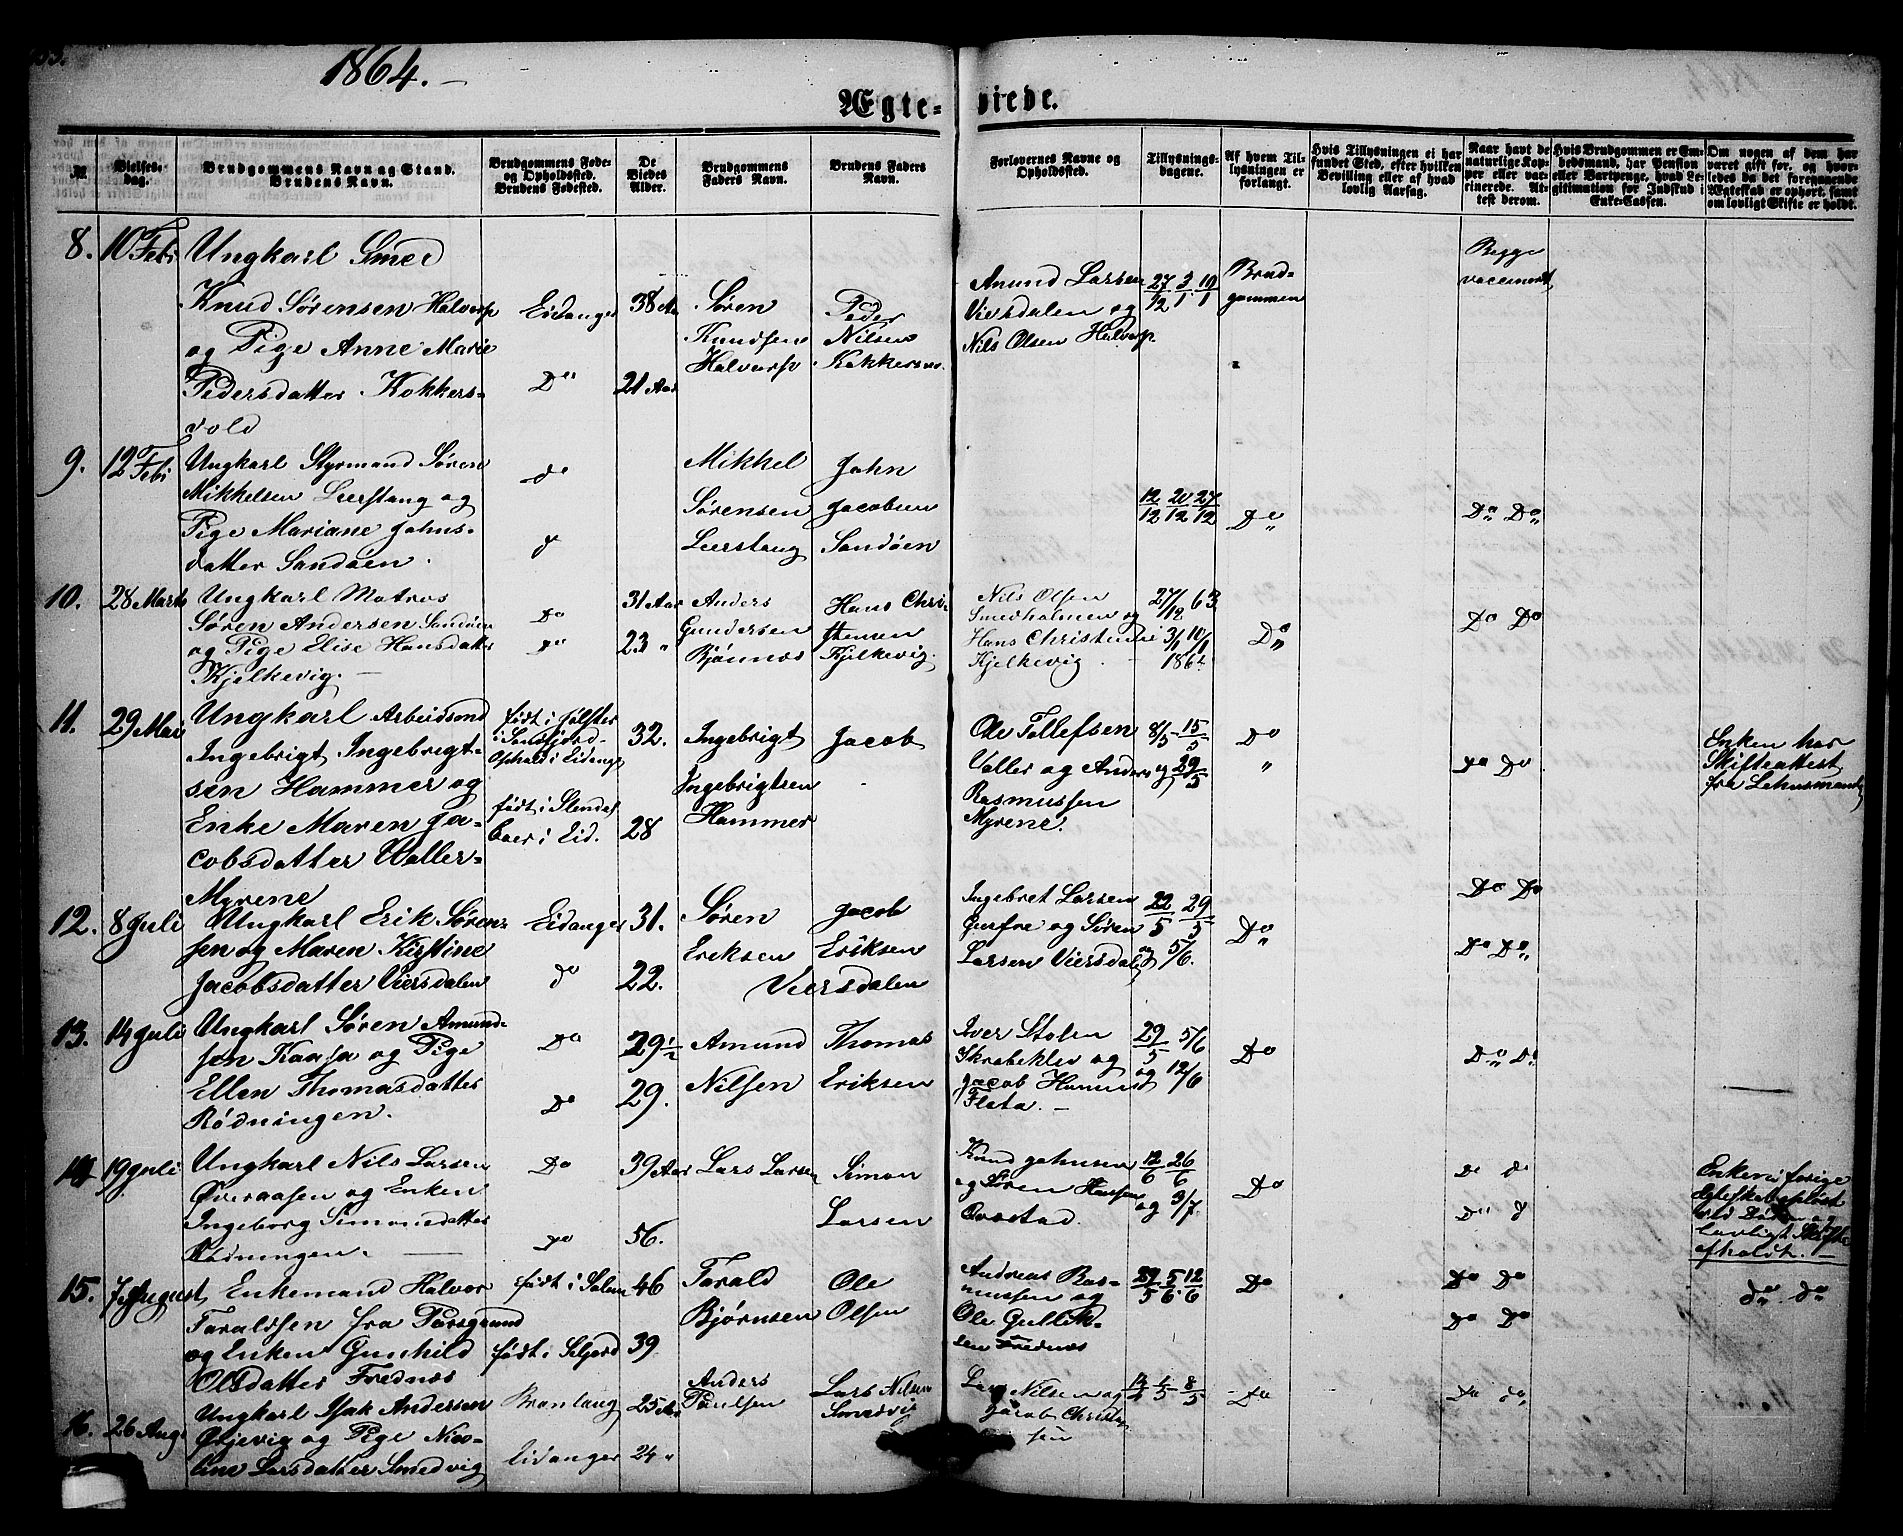 1864.-
Ægte- viede.
№
Vielses-
dag.
Brudgommens Navn og Stand.
Brudens Navn.
Brudgommens Føde-
og Opholdssted.
Brudens Fødested.
De
Viedes
Alder.
Brudgommens
Faders Navn.
Brudens Faders
Navn.
Forlovernes Navne og
Opholdssted.
Tillysnings-
dagene.
Af hvem Til-
lysningen er
forlangt.
Hvis Tillysningen ei har
fundet Sted, efter hvilken
Bevilling eller af hvad
lovlig Aarsag.
Naar havt de
naturlige Kop-
per eller vac-
cinerede. At-
test derom.
Hvis Brudgommen er Em-
bedsmand, har Pension
eller Vartpenge, hvad Le-
gitimation for Indskud i
Enke-Cassen.
Om nogen af dem har
været gift før, og hvor-
ledes da det foregaaende
Ægteskab er ophørt, samt
om lovligt Skifte er holdt.
8. 10 Feb
Ungkarl Smed
Knud Sørensen Halvarp
og Pige Anne Marie
Pedersdatter Kokkers-
vold
Eidanger
Do
38 Aar
21 Aar
Søren
Knudsen
Halvarp
Peder
Nilsen
Kokkersvo.
Amund Larsen
Viersdalen og
Nils Olsen Halvarp
27/12 3/1 10/1
Brud-
gommen
Begge
vaccineret
9. 12 Feb
Ungkarl Styrmand Søren
Mikkelsen Leerstang og
Pige Mariane Johns-
datter Sandøen.
do
d
Mikkel
Sørensen
Leerstang
John
Jacobsen
Sandøen
12/12 20/12 27/12
Do
Do Do
10. 28 Marts
Ungkarl Matros
Søren Andersen Sandøen
og Pige Elise Hansdatter
Kjelkevig.
Do
do
31 Aar
23 "
Anders
Gundersen
Bjønnæs
Hans Chri-
stensen
Kjelkevig.
Nils Olsen
Smedholmen og
Hans Christensen
Kjelkevig
27/12 63
3/1 10/1
1864
Do
Do Do
11. 29 Mai
Ungkarl Arbeidsmd
Ingebrigt Ingebrigt-
sen Hammer og
Enke Maren Ja-
cobsdatter Valler-
Myrene
født i Jølster
i Søndfjord-
Ophold i Eidanger
født i Slendal
baer i Eid.
32.
28
Ingebrigt
Ingebrigtsen
Hammer
Jacob
Ole Tollefsen
Valler og Anders
Rasmussen
Myrene.
8/5 - 15/5
og 29/5
Do
"
do do
Enken har
Skifteattest
fra Lehnsmand
12. 8 Juli
Ungkarl Erik Søren-
sen og Maren Kirstine
Jacobsdatter Viersdalen
Eidanger
do
31.
22.
Søren
Eriksen
Jacob
Eriksen
Viersdalen
Ingebret Larsen
Ørsfre og Søren
Larsen Viersdal
22/5 29/5
og 5/6.
Do
Do Do
Do Do
13. 14 Juli
Ungkarl Søren Amund-
sen Kaasa og Pige
Ellen Thomasdatter
Rødningen.
Do
Do
29 1/2
29.
Amund
Nilsen
Thomas
Eriksen
Iver Stolen
Skrabeklev og
Jacob Hansen
Flata. -
29/5 5/6
og 12/6
Do
Do Do
14 19 Juli
Ungkarl Nils Larsen
Øveraasen og Enken
Ingeborg Simonsdatter
Rødningen. -
Do
do
39 Aar
56.
Lars Larsen
Simon
Larsen
Knud Johnsen
og Søren Hansen
Ørstad.
12/6 26/6
og 3/7.
Do
do do
Do d
Enkens forige
Ægteskab opløst
ved Døden og
lovligt Skifte
afholdt. -
15. 7 August
Enkemand Halvor
Taraldsen fra Porsgrund
og Enken Gunhild
Olsdatter Frednæs
født i Solum
født i Seljord
46
39
Tarald
Bjørnsen
Ole
Olsen
Andreas Ras-
mussen og
Ole Gullik-
sen Frednæs
29/5 5/6 12/6
Do
Do Do
do Do
do do
16. 26 Aug
Ungkarl Isak Andersen
Ørjevig og Pige Nico-
line Larsdatter Smedvig
Eidanger
25 Aar
24 "
Anders
Paulsen
Lars Nilsen
Smedvig
Nilsen og
Jacob Christen
sen
1/5 8/5
Do
Do do